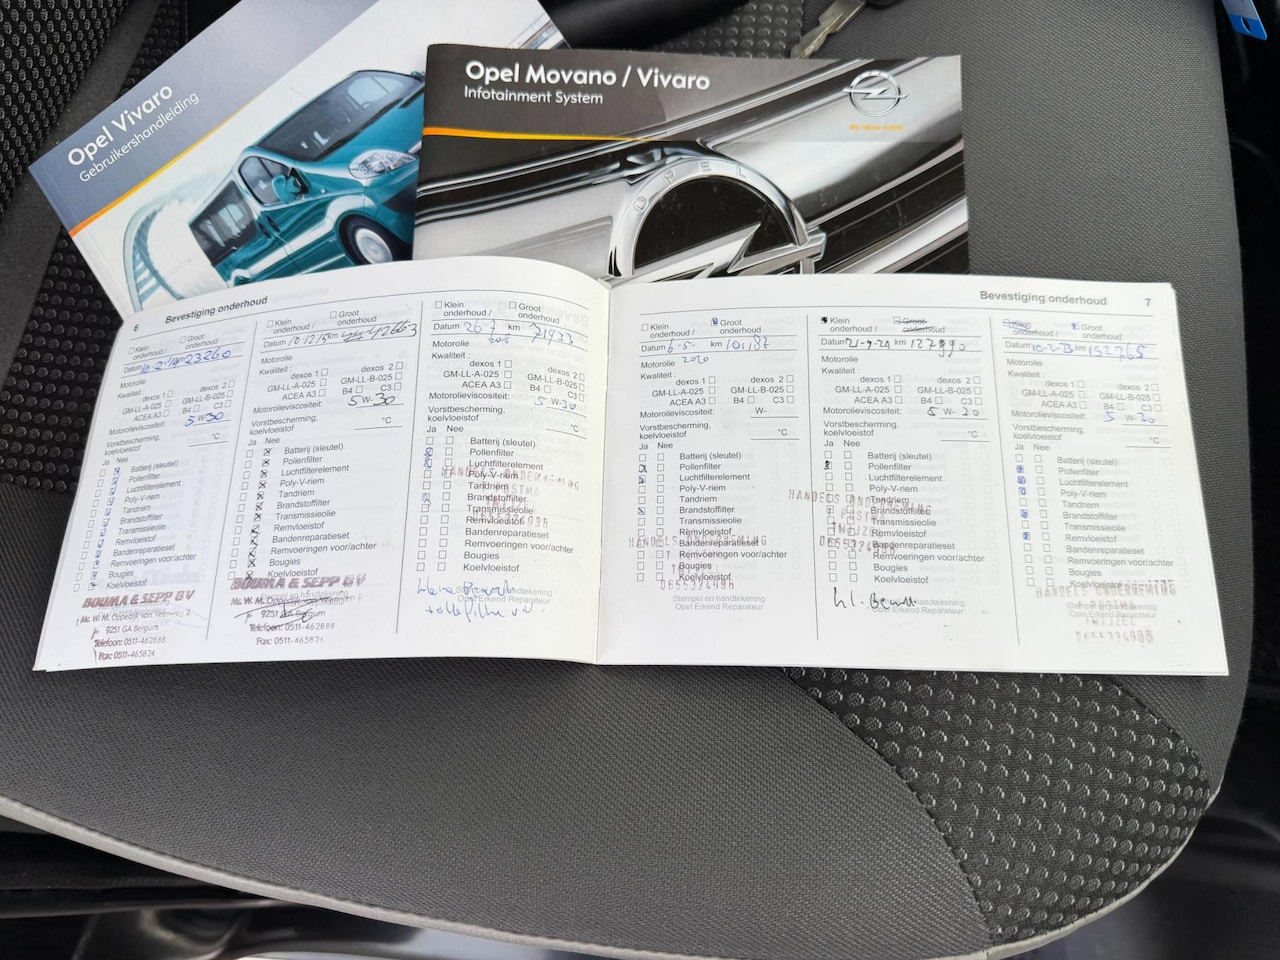 Opel Vivaro
Gebruikershandleiding
Opel Movano / Vivaro
Infotainment System
OPEL
6 Bevestiging onderhoud
☐ Klein onderhoud / ☐ Groot onderhoud
Datum km 23260
Motorolie
Kwaliteit :
dexos 1 ☐ dexos 2 ☐
GM-LL-A-025 ☐ GM-LL-B-025 ☐
ACEA A3 ☐ B4 ☐ C3 ☐
Motorolieviscositeit: 5 W-30
Vorstbescherming,
koelvloeistof °C
Ja Nee
Batterij (sleutel)
Pollenfilter
Luchtfilterelement
Poly-V-riem
Tandriem
Brandstoffilter
Transmissieolie
Remvloeistof
Bandenreparatieset
Remvoeringen voor/achter
Bougies
Koelvloeistof
BOUMA & SEPP BV
Mr. W. M. Oppedijk van Veenweg
9251 GA Bergum
Telefoon: 0511-462888
Fax: 0511-465824
☐ Klein onderhoud / ☐ Groot onderhoud
Datum 10-12-15 km 42663
Motorolie
Kwaliteit :
dexos 1 ☐ dexos 2 ☐
GM-LL-A-025 ☐ GM-LL-B-025 ☐
ACEA A3 ☐ B4 ☐ C3 ☐
Motorolieviscositeit: 5 W-30
Vorstbescherming,
koelvloeistof °C
Ja Nee
Batterij (sleutel)
Pollenfilter
Luchtfilterelement
Poly-V-riem
Tandriem
Brandstoffilter
Transmissieolie
Remvloeistof
Bandenreparatieset
Remvoeringen voor/achter
Bougies
Koelvloeistof
BOUMA & SEPP BV
Mr. W. M. Oppedijk van Veenweg
9251 GA Bergum
Telefoon: 0511-462888
Fax: 0511-465824
☐ Klein onderhoud / ☐ Groot onderhoud
Datum 26-7 km 71933
Motorolie
Kwaliteit :
dexos 1 ☐ dexos 2 ☐
GM-LL-A-025 ☐ GM-LL-B-025 ☐
ACEA A3 ☐ B4 ☐ C3 ☐
Motorolieviscositeit: 5 W-30
Vorstbescherming,
koelvloeistof °C
Ja Nee
Batterij (sleutel)
Pollenfilter
Luchtfilterelement
Poly-V-riem
Tandriem
Brandstoffilter
Transmissieolie
Remvloeistof
Bandenreparatieset
Remvoeringen voor/achter
Bougies
Koelvloeistof
HANDELS ONDERNEMING
POSTMA
TWIJZEL
0655324998
Stempel en handtekening
Opel Erkend Reparateur
Bevestiging onderhoud 7
☐ Klein onderhoud / Groot onderhoud
Datum 6-5- km 101,187
2020
Motorolie
Kwaliteit :
dexos 1 ☐ dexos 2 ☐
GM-LL-A-025 ☐ GM-LL-B-025 ☐
ACEA A3 ☐ B4 ☐ C3 ☐
Motorolieviscositeit: W-
Vorstbescherming,
koelvloeistof °C
Ja Nee
Batterij (sleutel)
Pollenfilter
Luchtfilterelement
Poly-V-riem
Tandriem
Brandstoffilter
Transmissieolie
Remvloeistof
Bandenreparatieset
Remvoeringen voor/achter
Bougies
Koelvloeistof
HANDELS ONDERNEMING
TWIJZEL
0655324998
Stempel en handtekening
Opel Erkend Reparateur
Klein onderhoud / Groot onderhoud
Datum 21-9-21 km 127990
Motorolie
Kwaliteit :
dexos 1 ☐ dexos 2 ☐
GM-LL-A-025 ☐ GM-LL-B-025 ☐
ACEA A3 ☐ B4 ☐ C3 ☐
Motorolieviscositeit: 5 W-30
Vorstbescherming,
koelvloeistof °C
Ja Nee
Batterij (sleutel)
Pollenfilter
Luchtfilterelement
Poly-V-riem
Tandriem
Brandstoffilter
Transmissieolie
Remvloeistof
Bandenreparatieset
Remvoeringen voor/achter
Bougies
Koelvloeistof
HANDELS ONDERNEMING
POSTMA
TWIJZEL
0655324998
Stempel en handtekening
Opel Erkend Reparateur
Klein onderhoud / Groot onderhoud
Datum 10-2-23 km 152765
Motorolie
Kwaliteit :
dexos 1 ☐ dexos 2 ☐
GM-LL-A-025 ☐ GM-LL-B-025 ☐
ACEA A3 ☐ B4 ☐ C3 ☐
Motorolieviscositeit: 5 W-30
Vorstbescherming,
koelvloeistof °C
Ja Nee
Batterij (sleutel)
Pollenfilter
Luchtfilterelement
Poly-V-riem
Tandriem
Brandstoffilter
Transmissieolie
Remvloeistof
Bandenreparatieset
Remvoeringen voor/achter
Bougies
Koelvloeistof
HANDELS ONDERNEMING
POSTMA
TWIJZEL
0655324998
Stempel en handtekening
Opel Erkend Reparateur